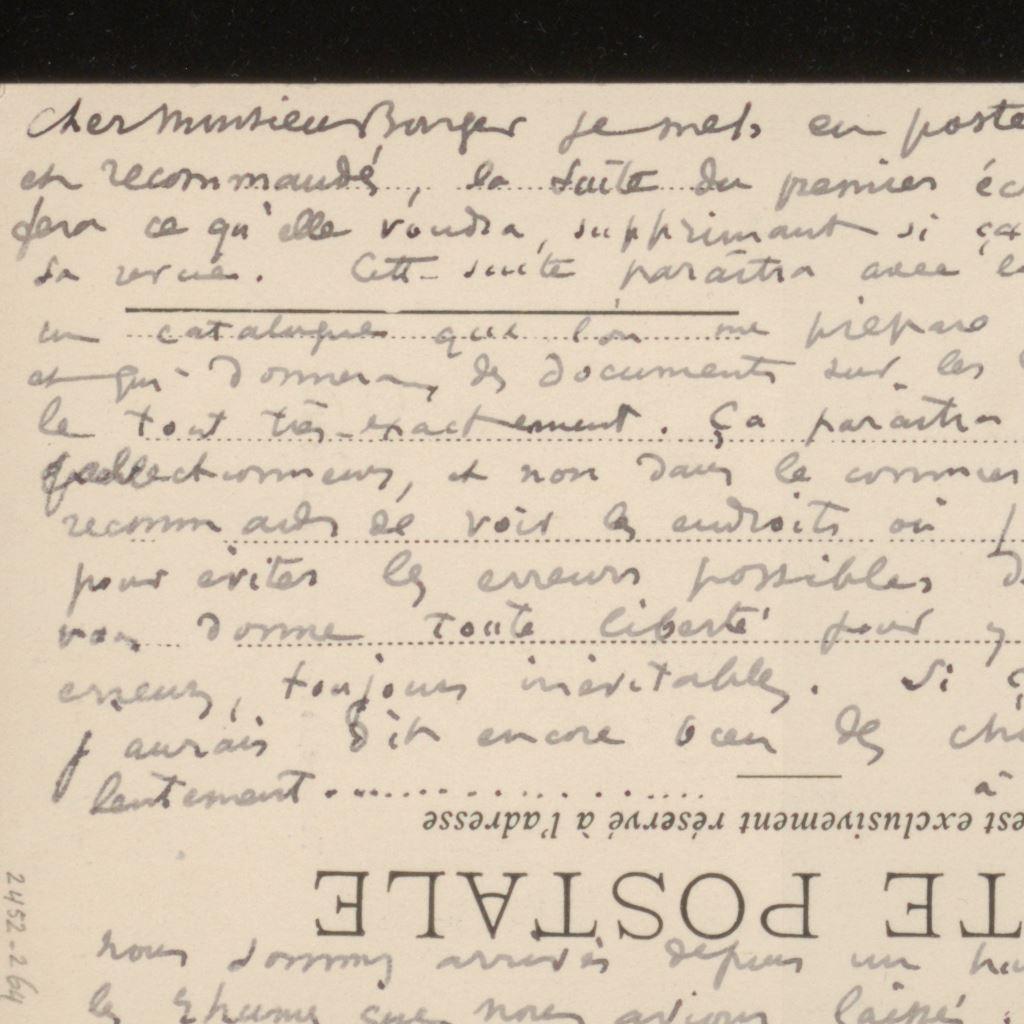 Cher Monsieur Bonger je mets en poste
en recommandé, la suite du premier
fera ce qu'elle voudra, supprimant si ça
sa revue. Cette suite paraîtra avec
un catalogue que l'on me prépare
et qui donnera des documents sur les
le tout très exactement. Ça paraîtra
collectionneurs, et non dans le
recommande de voir les endroits où
pour éviter les erreurs possibles
vous donne toute liberté pour y
erreurs, toujours inévitables. Si
j'aurais dit encore des
lentement..........
à
est exclusivement réservé à l'adresse
TE POSTALE
nous sommes arrivés depuis un
le rhume que nous avions laissé
2452-264